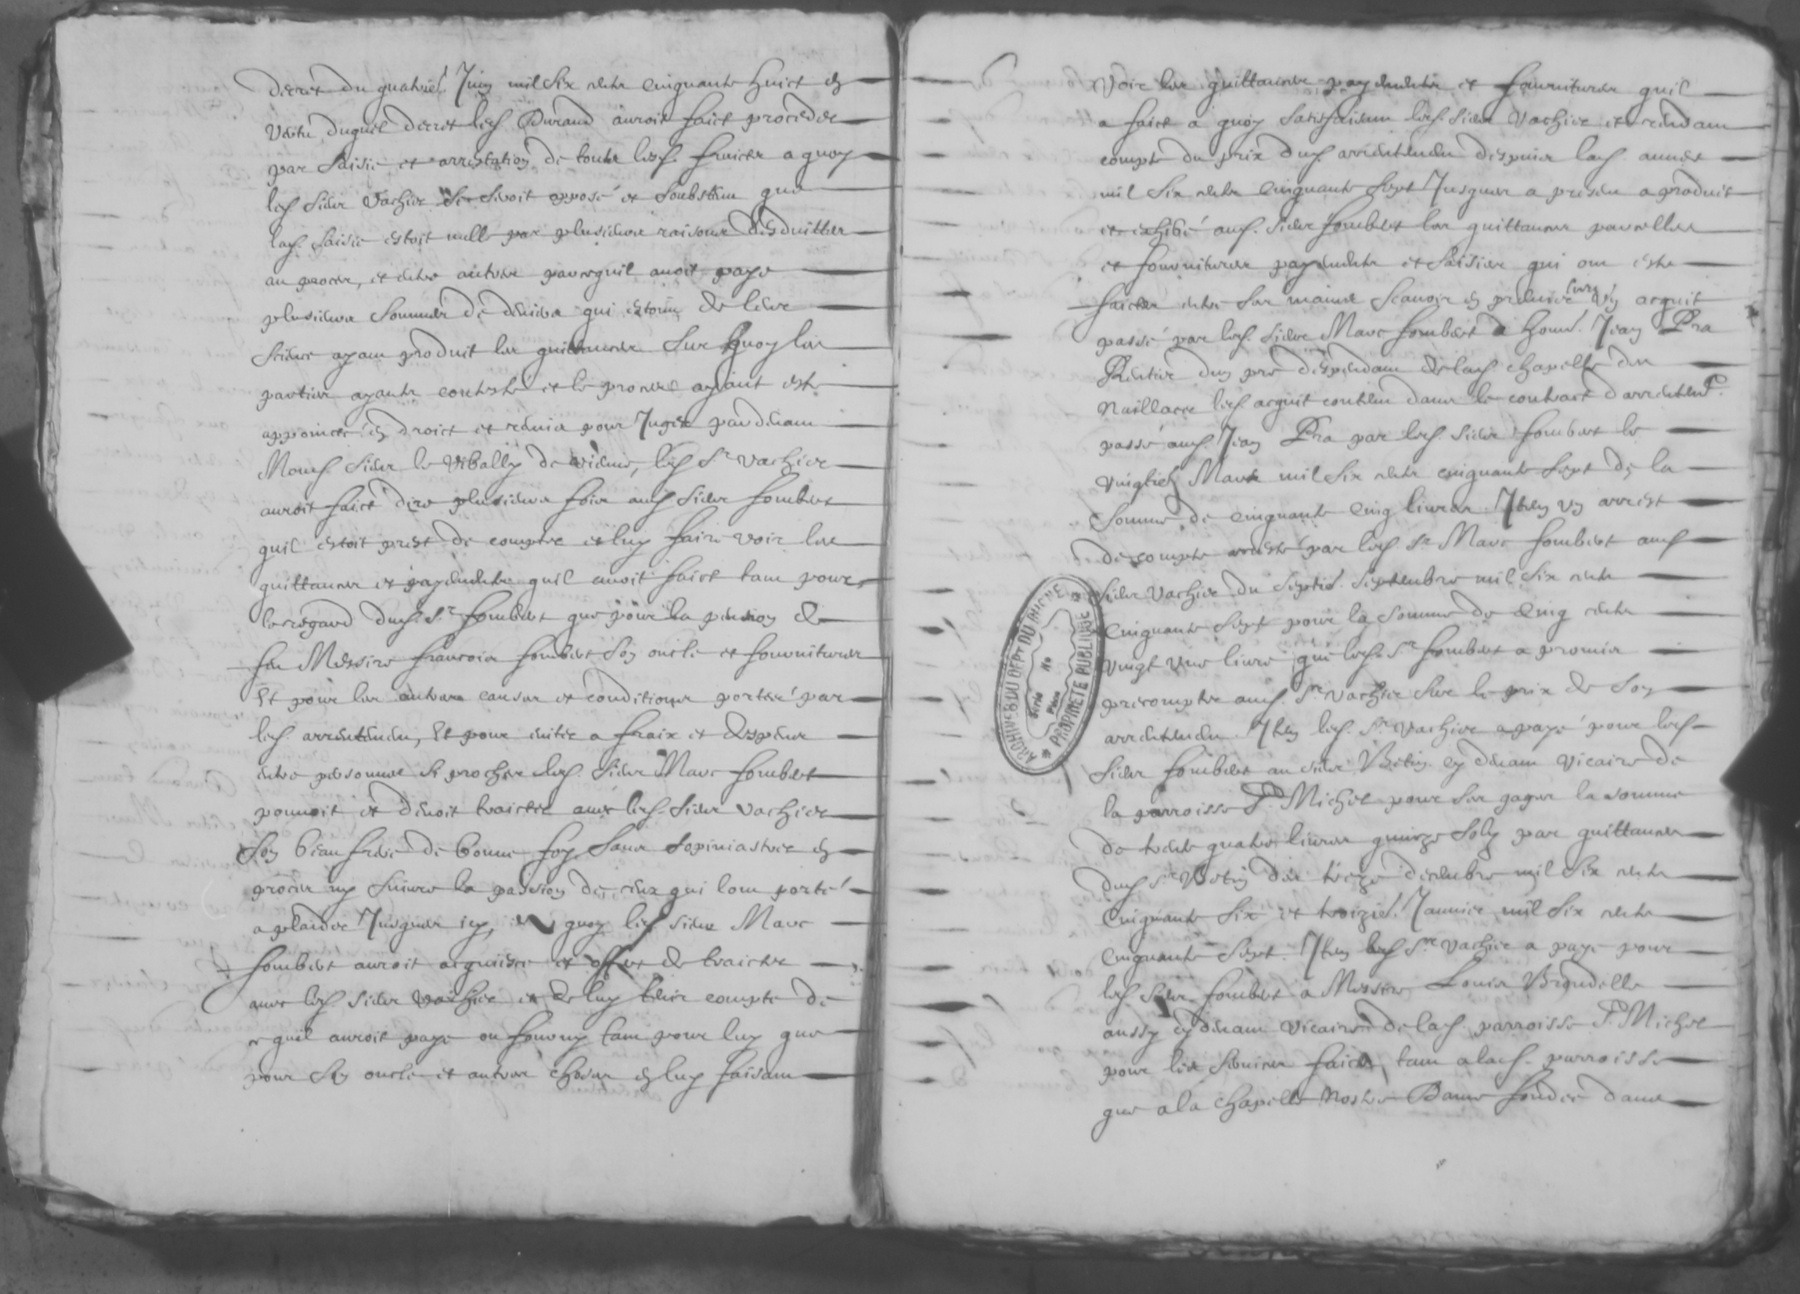 decret du quatrie.^e Juin mil six cents cinquante huict en
vertu duquel decret led. Durand auroit faict proceder
par saisie et arrestation de touts lesd. fruicts a quoy
led. sieur Vachier se seroit opposé et soubstenu que
lad. saisie estoit nulle par plusieurs raisons desduittes
au proces, et entre autres parcequil auoit paye
plusieurs sommes de deniers qui estoint de leur
ayant produit les quittances sur quoy les
parties ayants contesté et le proces ayant esté
appoincté en droict et remis pour juger pardeuant
Mons. sieur le Vibally de Vienne, led. S.^r Vachier
auroit faict dire plusieurs fois aud. sieur Fombert
quil estoit prest de compter et luy faire voir les
quittances et payements quil auoit faict tant pour
le regard dud. S.^r Fombert que pour la pension de
feu Messire Francois Fombert son oncle et fournitures
Et pour les autres causes et conditions portées par
led. arrentement, Et pour euiter a fraix et despens
entre personnes si proches led. sieur Marc Fombert
pouuoit et deuoit traicter auec led. sieur Vachier
son beau frere de bonne foy sans sopiniastrer en
proces ny suiure la passion de ceux qui lont porté
a plaider Jusques icy, a quoy led. sieur Marc
Fombert auroit acquiescé et offert de traicter
auec led. sieur Vachier et de luy tenir compte de
ce quil auroit paye ou fourny tant pour luy que
pour son oncle et autres choses en luy faisant
voir les quittances payements et fournitures quil
a faict a quoy satisfaisant led. sieur Vachier et rendant
compte du prix dud. arrentement despuis lad. année
mil six cents cinquante sept Jusques a present a produit
et exhibé aud. sieur Fombert les quittances parcelles
et fournitures payements et saisies qui ont esté
faictes entre ses mains scauoir en premier lieu un acquit
passé par led. sieur Marc Fombert a hon.^e Jean Pra
Rentier dun pré despendant de lad. chapelle des
led. acquit contenu dans le contract darrentem.^t
passé aud. Jean Pra par led. sieur Fombert le
vingtie. Mars mil six cents cinquante sept de la
somme de cinquante cinq liures Item un arrest
de compte arresté par led. S.^r Marc Fombert aud.
sieur Vachier du septie. septembre mil six cents
cinquante sept pour la somme de cinq cents
vingt une liure que led. S.^r Fombert a promis
precompter aud. S.^r Vachier sur le prix de son
arrentement Item led. S.^r Vachier a payé pour led.
sieur Fombert au sieur Vetin cy deuant vicaire de
la parroisse S.^t Michel pour ses gages la somme
de trente quatre liures quinze sols par quittances
dud. S.^r Vetin des treze decembre mil six cents
cinquante six et troizie. Januier mil six cents
cinquante sept. Item led. S.^r Vachier a paye pour
led. sieur Fombert a Messire Louis
aussy cy deuant vicaire de lad. parroisse S.^t Michel
pour les seruices faicts tant a lad. parroisse
que a la chapelle Nostre Dame fondée dans
ARCHIVES DU DEPT DU ARCHE
PROPRIETE PUBLIQUE